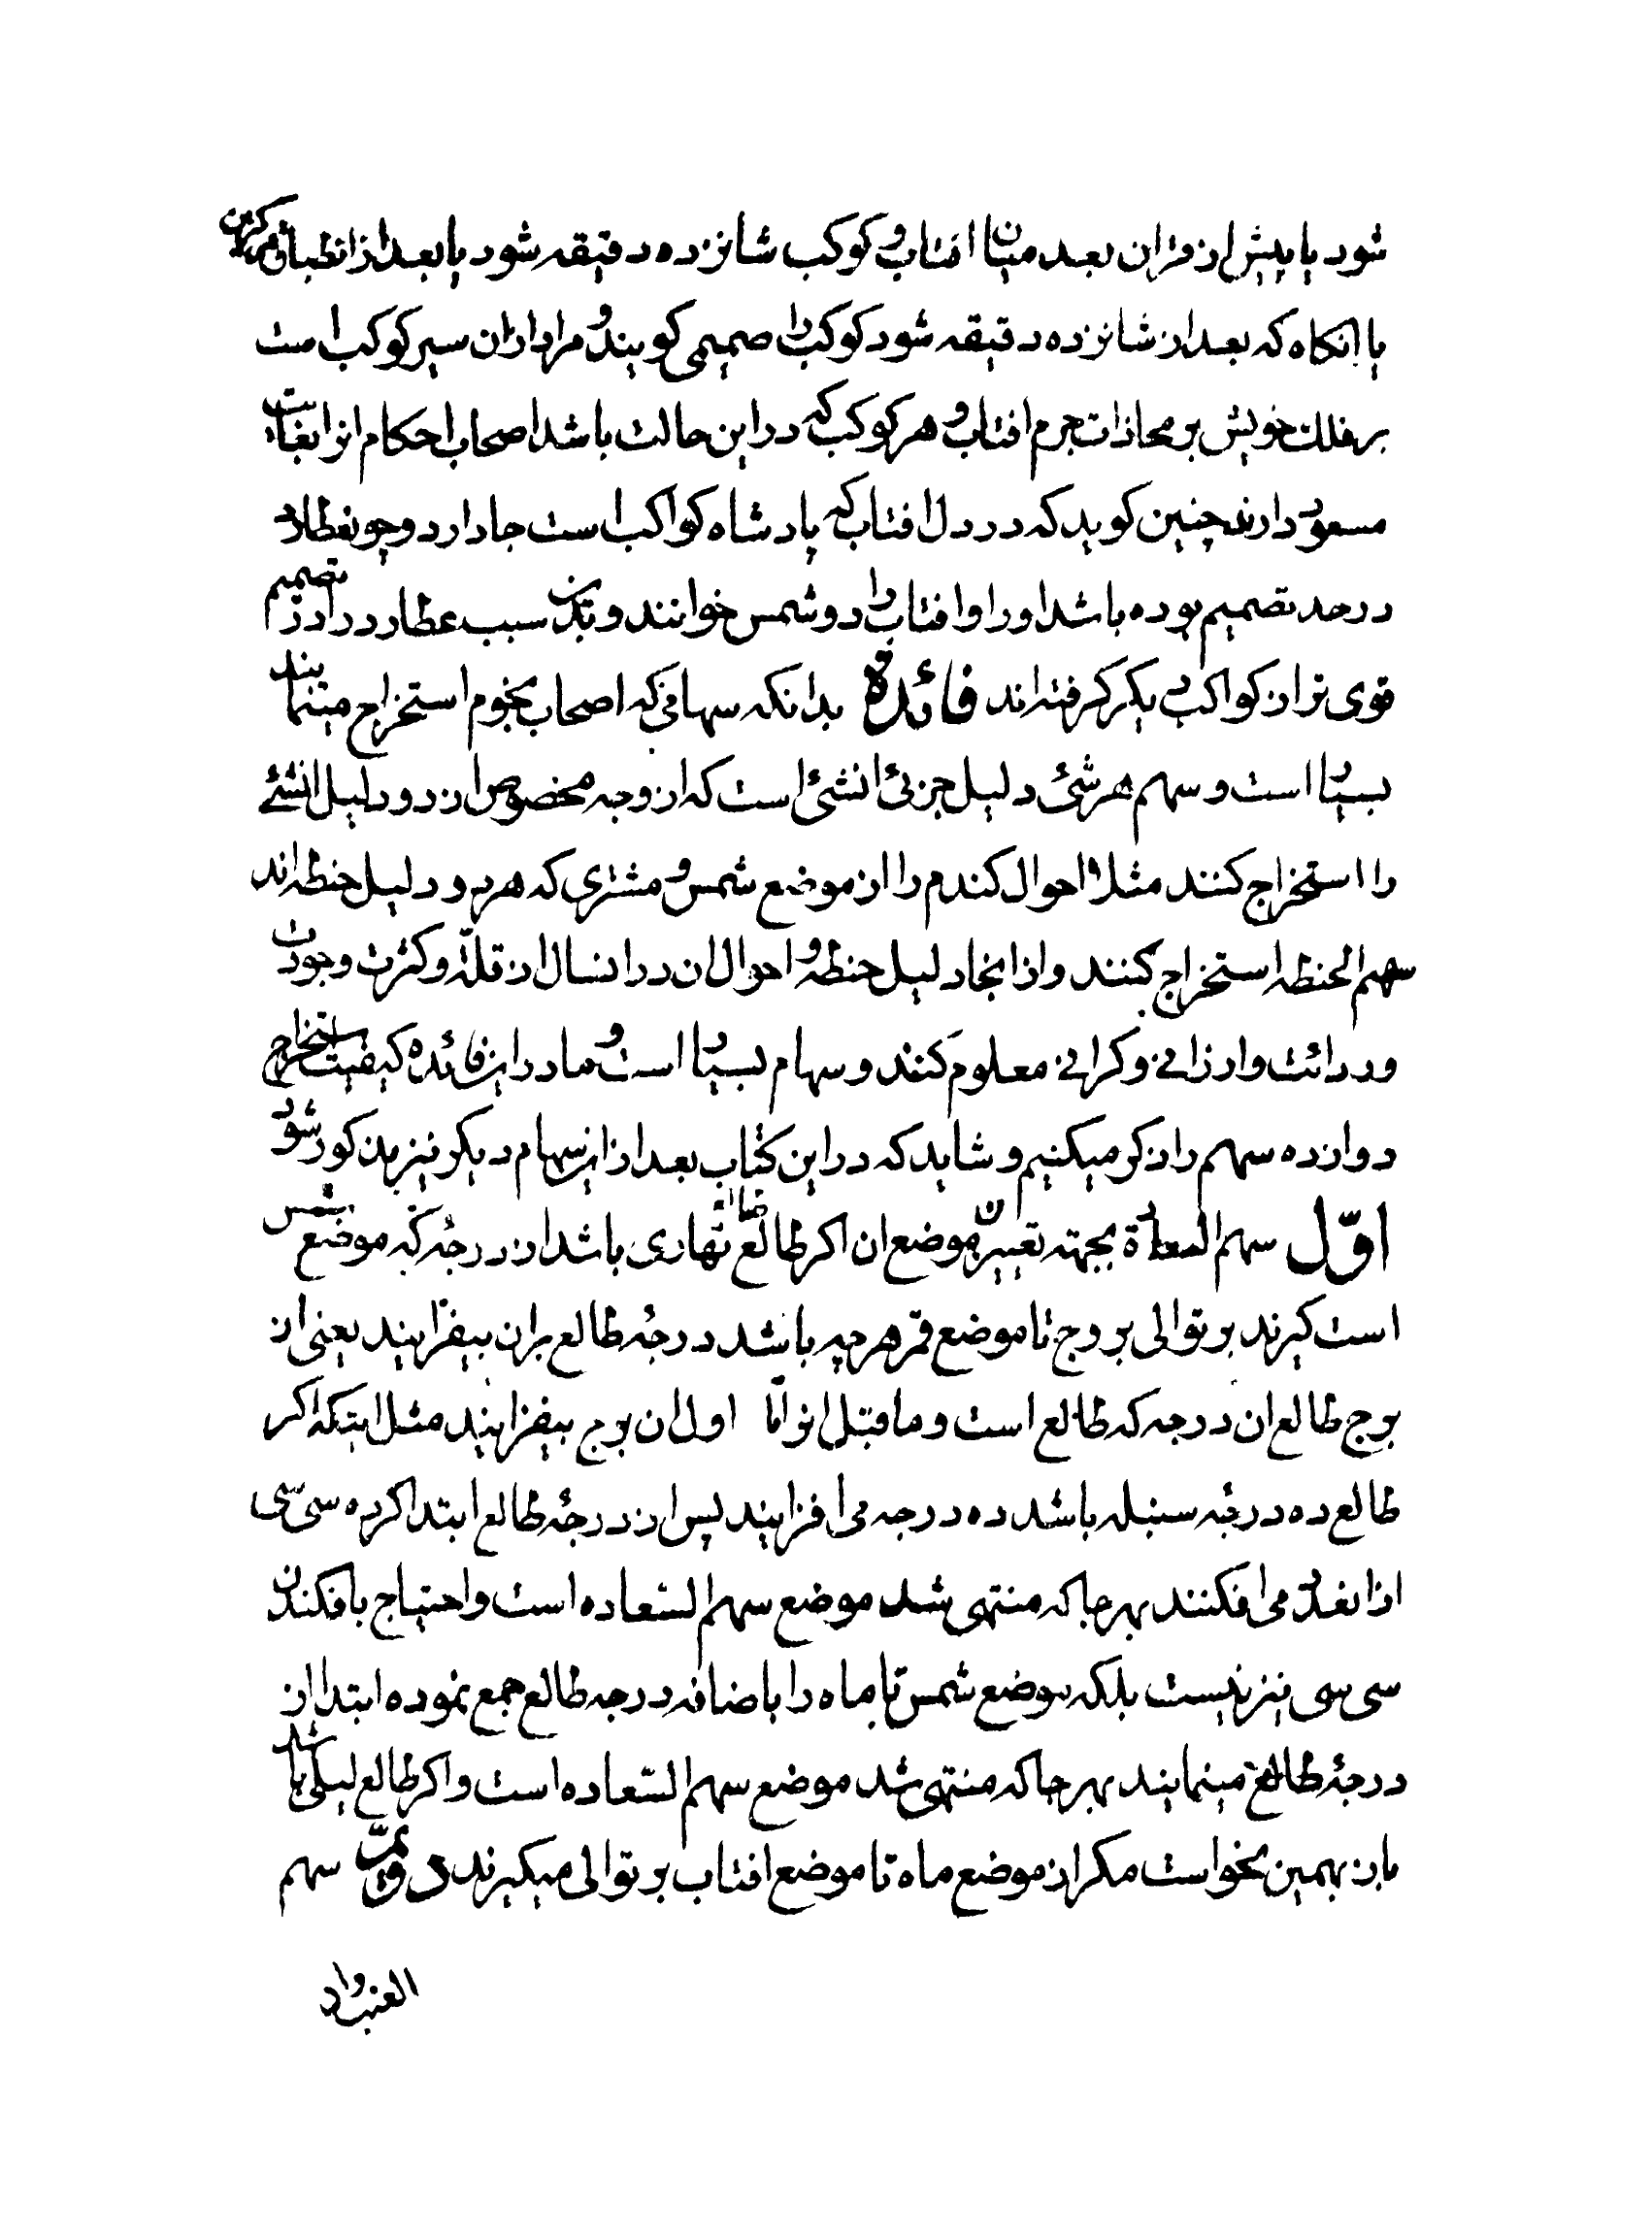 شود یا پیش از قران بعد میان افتاب و کوکب شانزده دقیقه شود یا بعد از انطباق مرکزین
یا انکاه که بعد از شانزده دقیقه شود کوکب را صمیمی کویند و مراد از ان سیر کوکب است
بر فلک خویش بر محاذات جرم افتاب و هر کوکب که در این حالت باشد اصحاب احکام انرا بغایت
مسعود دارند چنین کوید که در دل افتاب که پادشاه کواکب است جا دارد و چون عطارد
در حد تصمیم بوده باشد او را و افتاب را دو شمس خوانند و بدین سبب عطارد را در تصمیم
قوی تر از کواکب دیکر کرفته اند فائدة بدانکه سهامی که اصحاب نجوم استخراج مینمایند
بسیار است و سهم هر شئ دلیل جزئ انشئ است که از وجه مخصوص از دو دلیل انشئ
را استخراج کنند مثلا احوال کندم را از موضع شمس و مشتری که هر دو دلیل حنطه اند
سهم الحنطه استخراج کنند و از انجا دلیل حنطه و احوال ان در انسال از قلة و کثرت و جودت
و ردائت و ارزانی و کرانی معلوم کنند و سهام بسیار است و ما در این فائده کیفیت استخراج
دوازده سهم را ذکر میکنیم و شاید که در این کتاب بعد از این سهام دیکر نیز مذکور شود
اوّل سهم السعادة بجهته تعیین موضع ان اکر طالع نهاری باشد از درجهٔ که موضع شمس
است کیرند بر توالی بروج تا موضع قمر هرچه باشد درجهٔ طالع بران بیفزایند یعنی از
برج طالع ان درجه که طالع است و ما قبل انرا تا اول ان برج بیفزایند مثل اینکه اکر
طالع ده درجهٔ سنبله باشد ده درجه می افزایند پس از درجهٔ طالع ابتدا کرده سی سی
از انقدر می افکنند بهر جا که منتهی شد موضع سهم السّعاده است و احتیاج بافکندن
سی سی نیز نیست بلکه موضع شمس تا ماه را باضافه درجه طالع جمع نموده ابتدا از
درجهٔ طالع مینمایند بهر جا که منتهی شد موضع سهم السّعاده است و اکر طالع لیلی باشد
باز بهمین نحو است مکر از موضع ماه تا موضع افتاب بر توالی میکیرند دویّم سهم